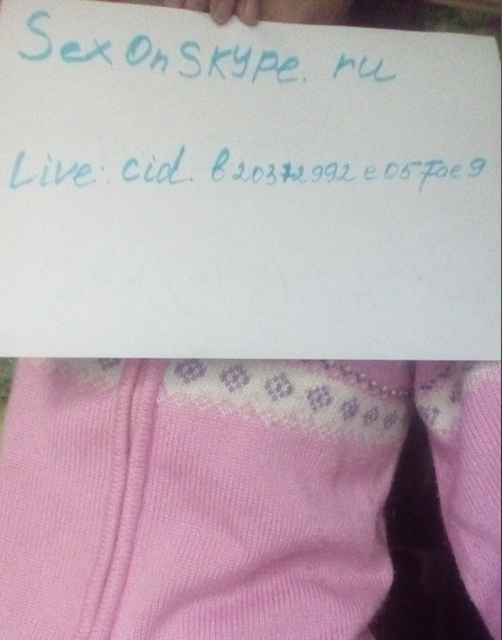 SexOnSkype.ru
Live: cid. b20372992e057ae9